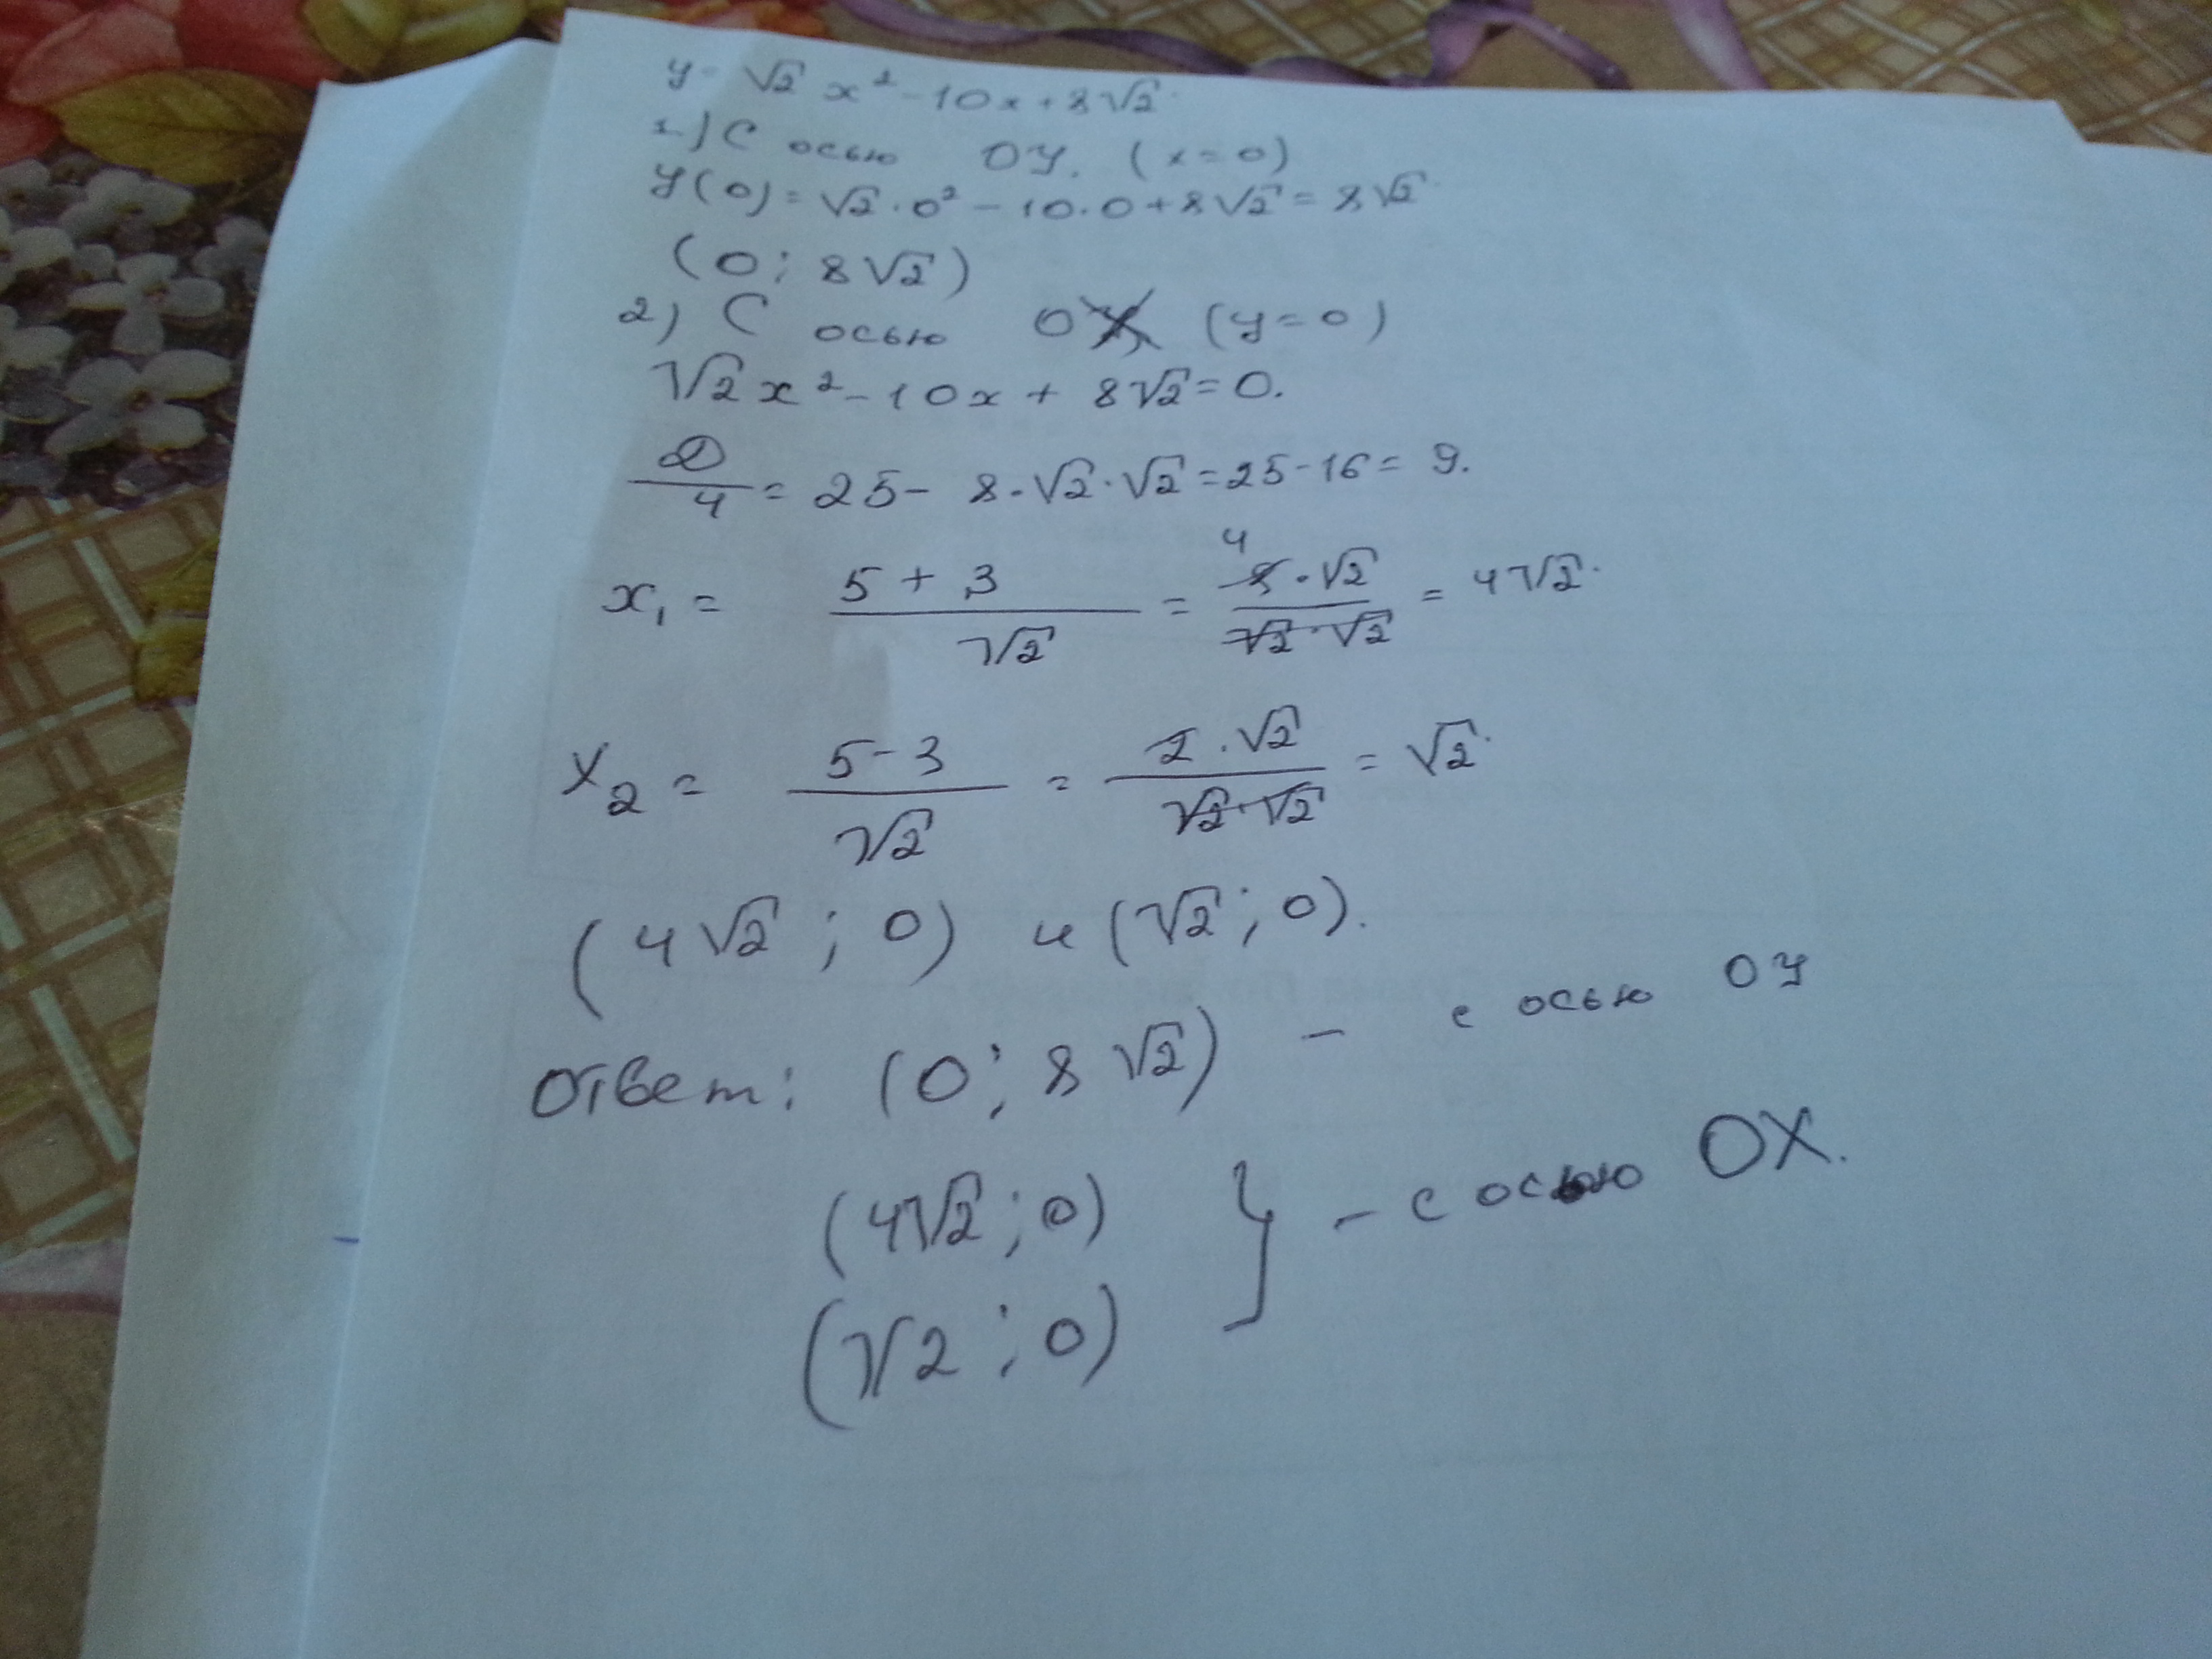 y = √2 x² - 10x + 8√2.
1) С осью OY. (x = 0)
y(0) = √2 · 0² - 10 · 0 + 8√2 = 8√2.
(0; 8√2)
2) С осью OX (y = 0)
√2 x² - 10x + 8√2 = 0.
D/4 = 25 - 8 · √2 · √2 = 25 - 16 = 9.
x₁ = (5 + 3)/√2 = (8 · √2)/(√2 · √2) = 4√2.
x₂ = (5 - 3)/√2 = (2 · √2)/(√2 · √2) = √2.
(4√2; 0) и (√2; 0).
Ответ: (0; 8√2) - с осью OY
(4√2; 0) } - с осью OX.
(√2; 0)